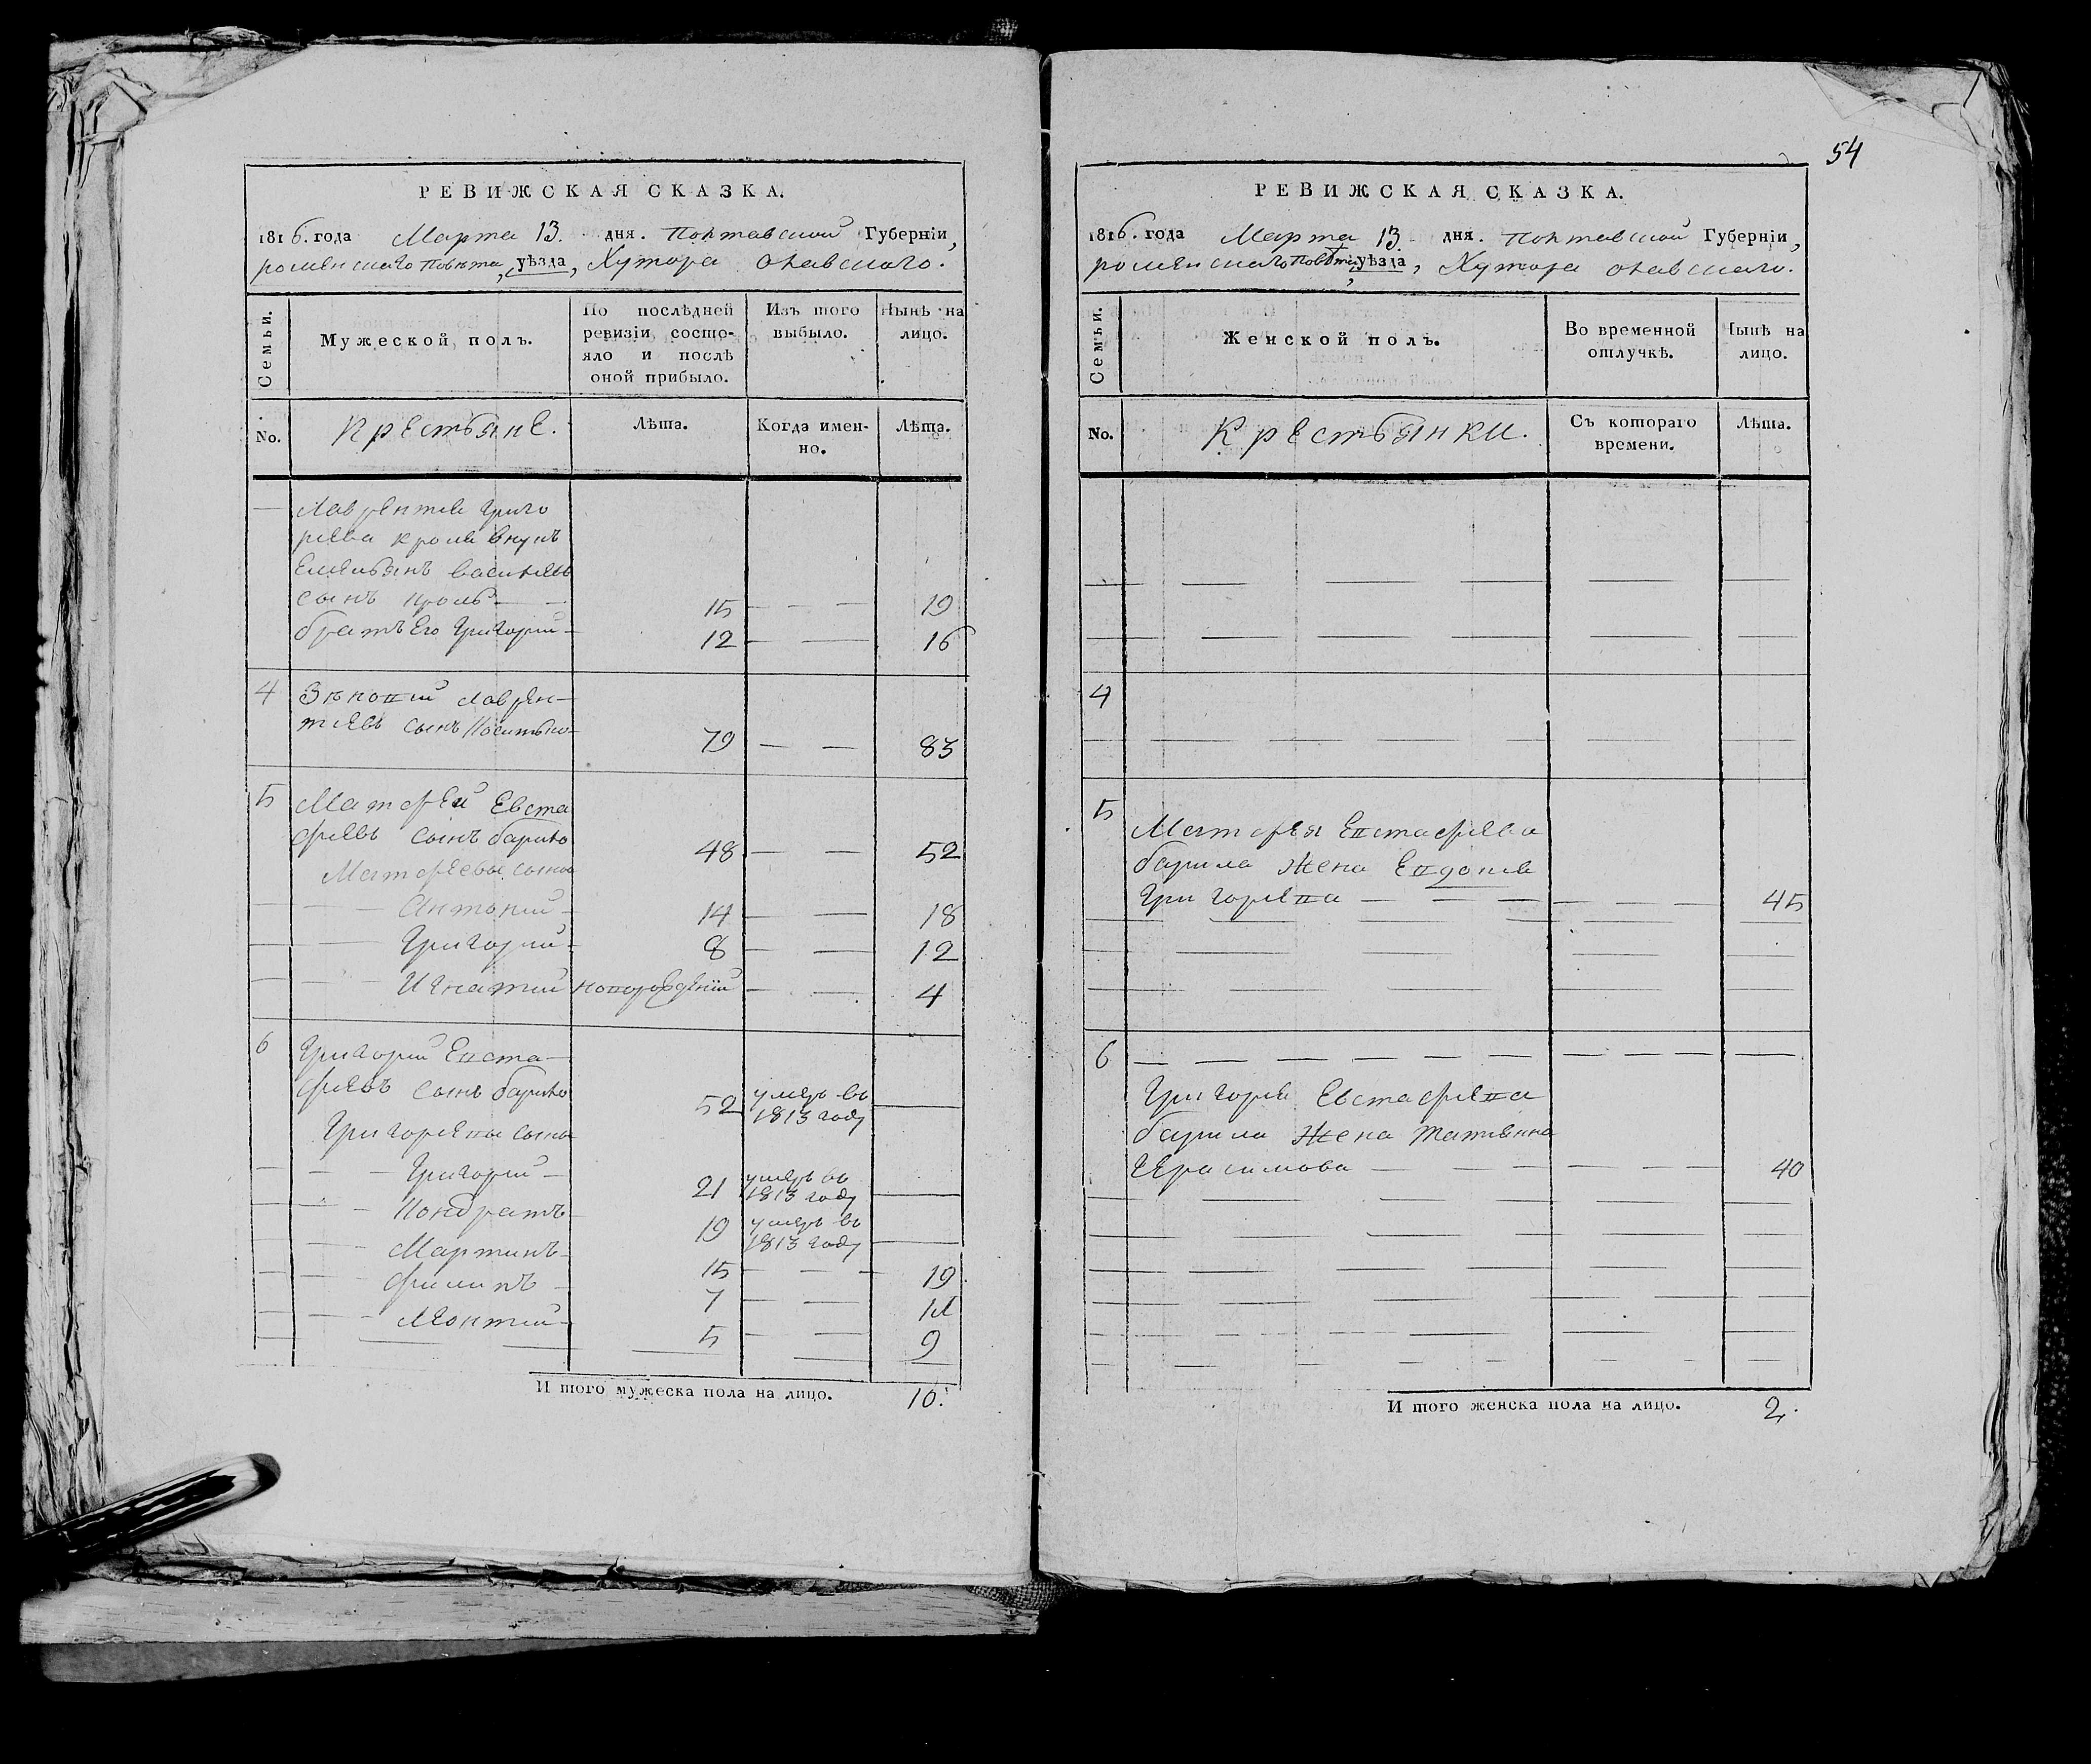 54
РЕВИЖСКАЯ СКАЗКА.
1816. года Марта 13. дня. Полтавской Губерніи,
роменскаго повѣта, уѣзда, Хутора
Семьи.
Мужеской полъ.
По послѣдней
ревизіи состо-
яло и послѣ
оной прибыло.
Изъ того
выбыло.
Нынѣ на
лицо.
No.
Крестьяне.
Лѣта.
Когда имен-
но.
Лѣта.
Лаврентія Григо
рьева внукъ
Емельянъ васильевъ
сынъ 15 19
братъ его Григорій 12 16
4 Лаврен-
тіевъ сынъ 79 83
5 Матфей Евста
фіевъ сынъ барило 48 52
Матфеевы сыны
Антоній 14 18
Григорій 8 12
Игнатій новорожденій 4
6 Григорій Евста-
фіевъ сынъ барило 52 умеръ въ 1813 году
Григорьевы сыны
Григорій 21 умеръ въ 1813 году
Кондратъ 19 умеръ въ 1813 году
Мартинъ 15 19
Филипъ 7 11
Леонтій 5 9
И того мужеска пола на лицо. 10.
РЕВИЖСКАЯ СКАЗКА.
1816. года Марта 13. дня. Полтавской Губерніи,
роменскаго повѣта, уѣзда, Хутора
Семьи.
Женской полъ.
Во временной
отлучкѣ.
Нынѣ на
лицо.
No.
Крестьянки.
Съ котораго
времени.
Лѣта.
4
5
Матфея Евстафіева
барила жена Евдокія
Григорьева 45
6
Григорія Евстафіева
барила жена Татіянна
Герасимова 40
И того женска пола на лицо. 2.